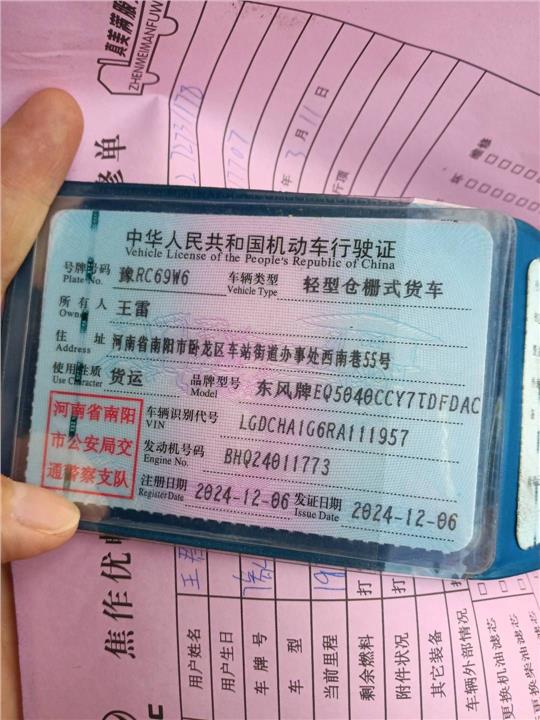 真美满服
ZHENMEIMANFUW
修单
3月11日
行项
中华人民共和国机动车行驶证
Vehicle License of the People's Republic of China
号牌号码 豫RC69W6 车辆类型 轻型仓栅式货车
Plate No. Vehicle Type
所有人 王雷
Owner
住址 河南省南阳市卧龙区车站街道办事处西南巷55号
Address
使用性质 货运 品牌型号 东风牌EQ5040CCY7TDFDAC
Use Character Model
河南省南阳
市公安局交
通警察支队
车辆识别代号 LGDCHA1G6RA111957
VIN
发动机号码 BHQ24011773
Engine No.
注册日期 2024-12-06 发证日期 2024-12-06
Register Date Issue Date
焦作优
用户姓名 王
用户生日
车牌号
车型
当前里程 19
剩余燃料 打
附件状况 打
其它装备 打
车辆外部情况
更换机油滤芯
更换柴油滤芯